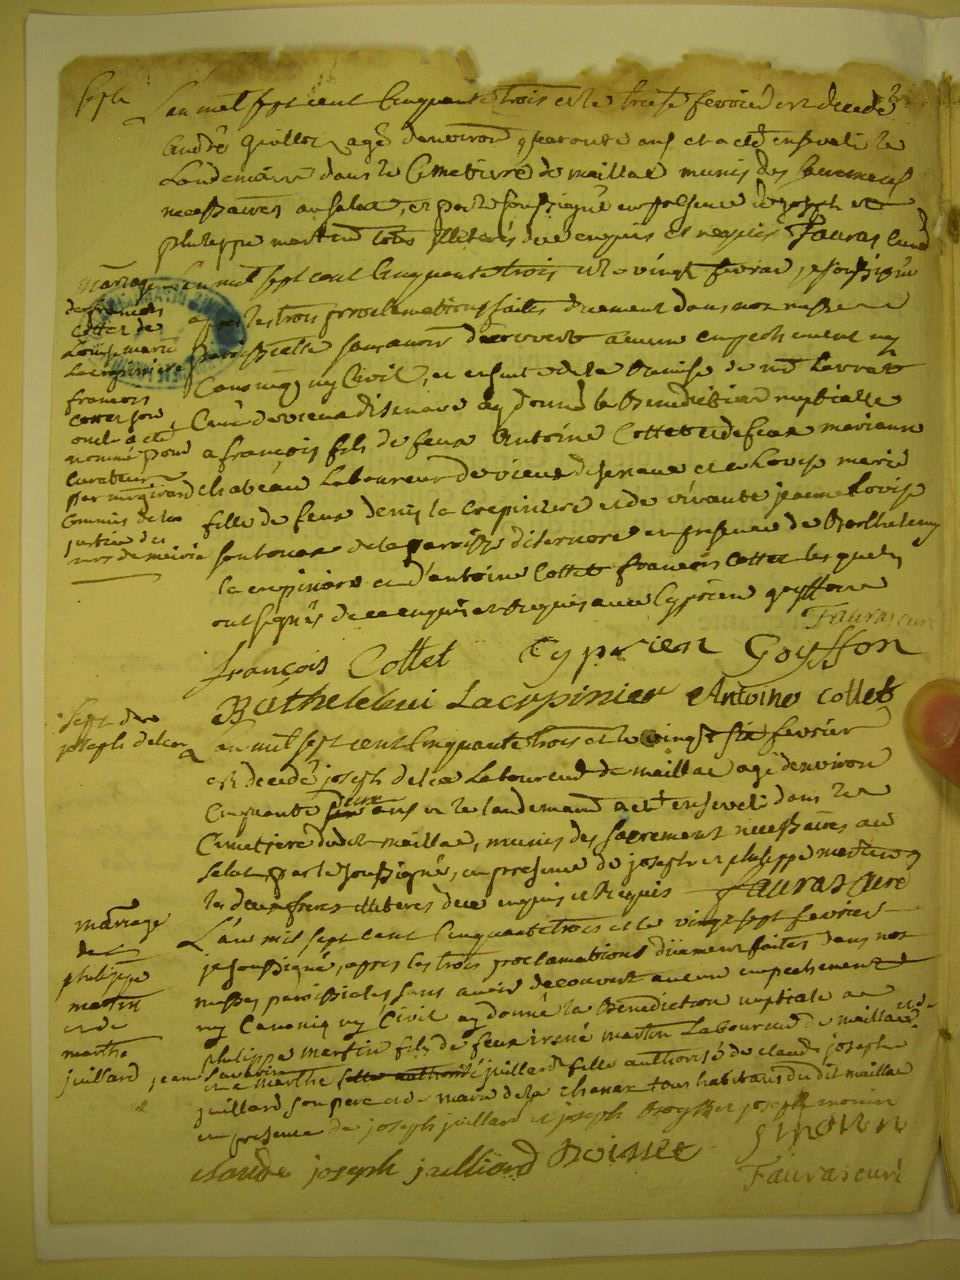 Sept.
L'an mil sept cent cinquante trois et le treise fevrier est decedé
Claude Guillot agé d'environ quarente ans et a eté enseveli le
Landemain dans le Cimetiere de maillat munis des sacremens
necessaires au salut, et par le soussigné en presence de joseph et
philippe martin tous illiterés de ce enquis et requis fauras curé
mariage
de francois
Collet de
Louise marie
Lacrepiniere
francois
Collet son
oncle a eté
nommé pour
Curateur
par mr girard
Commis de la
justice de
L'an mil sept cent cinquante trois et le vingt fevrier, je soussigné
apres les trois proclamations faites duement dans nos messes
paroissialle sans avoir decouvert aucun empechement ny
Canoniq ny Civil, et ensuite de la Remise de mr
Curé de vieux disenave ay donné la Benediction nuptialle
a françois fils de feux Antoine Collet et de feue marianne
chateau Laboureur de vieux disenave et a Louise marie
fille de feux denis la crepiniere et de vivante jeanne Louise
de la paroisse en presence de Barthelemy
la crepiniere et d'antoine Collet françois Collet lesquels
ont signés de ce enquis et requis avec Cyprien goyffon
fauras curé
françois Collet Cyprien Goyffon
Bathelemi Lacrpinier Antoine Collet
Sept. de
joseph delea
L'an mil sept cent cinquante trois et le vingt six fevrier
est decedé joseph delea Laboureur de maillat agé d'environ
Cinquante ans et le landemain a eté enseveli dans le
Cimetiere dudit maillat, munis des sacremens necessaires au
salut, par le soussigné, en presence de joseph et philippe martin
les deux freres illiteres de ce enquis et Requis fauras curé
mariage
de
philippe
martin
et de
marthe
juillard
L'an mil sept cent cinquante trois et le vingt sept fevrier
je soussigné, apres les trois proclamations duement faites dans nos
messes paroissiales sans avoir decouvert aucun empechement
ny Canoniq ny Civil ay donné la Benediction nuptiale a
philippe martin fils de feux irené martin Laboureur de maillat et de
jeane
et a marthe juillard fille authorisé de claude joseph
juillard son pere et de marie de la chanaz tous habitans dudit maillat
en presence de joseph juillard et joseph joseph
claude joseph juilliard
fauras curé